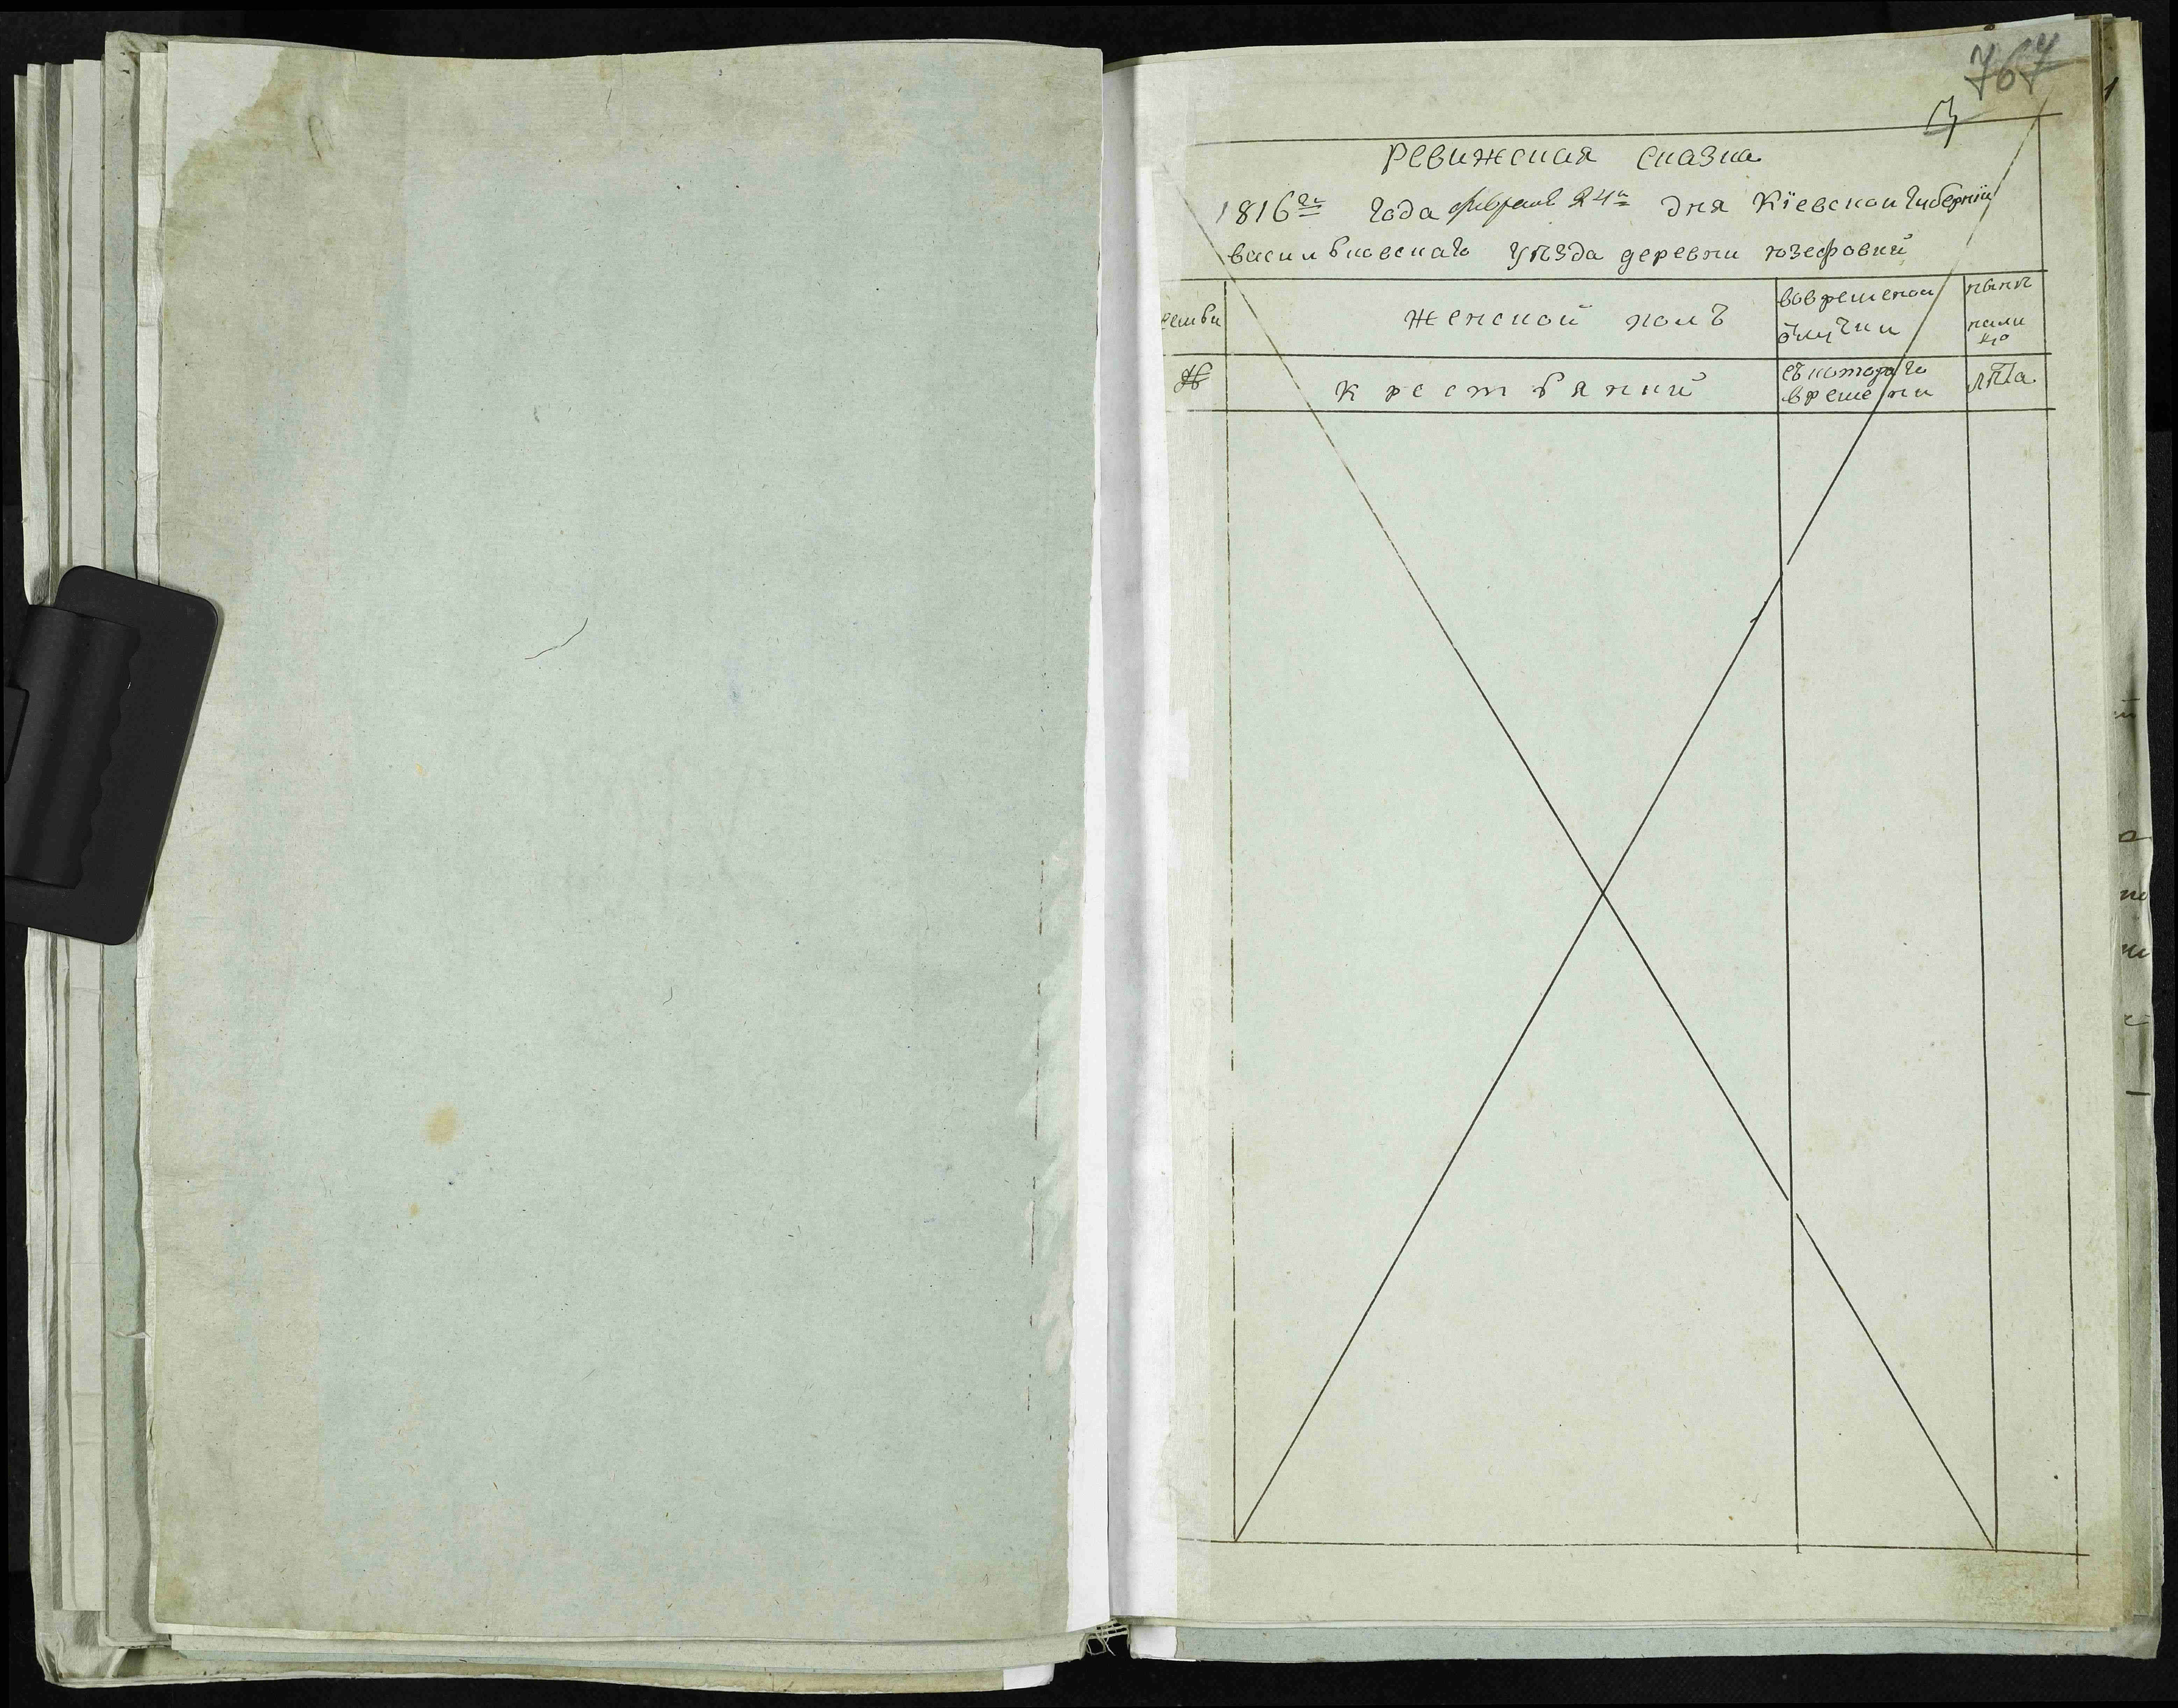 767
3
Ревижская сказка
1816го года февраля 24го дня Кїевской Губернїи
васильковскаго уѣзда деревни юзефовки
семьи
женской полъ
вовременой отлучки
нынѣ налицо
№
крестьянки
съ котораго времени
лѣта